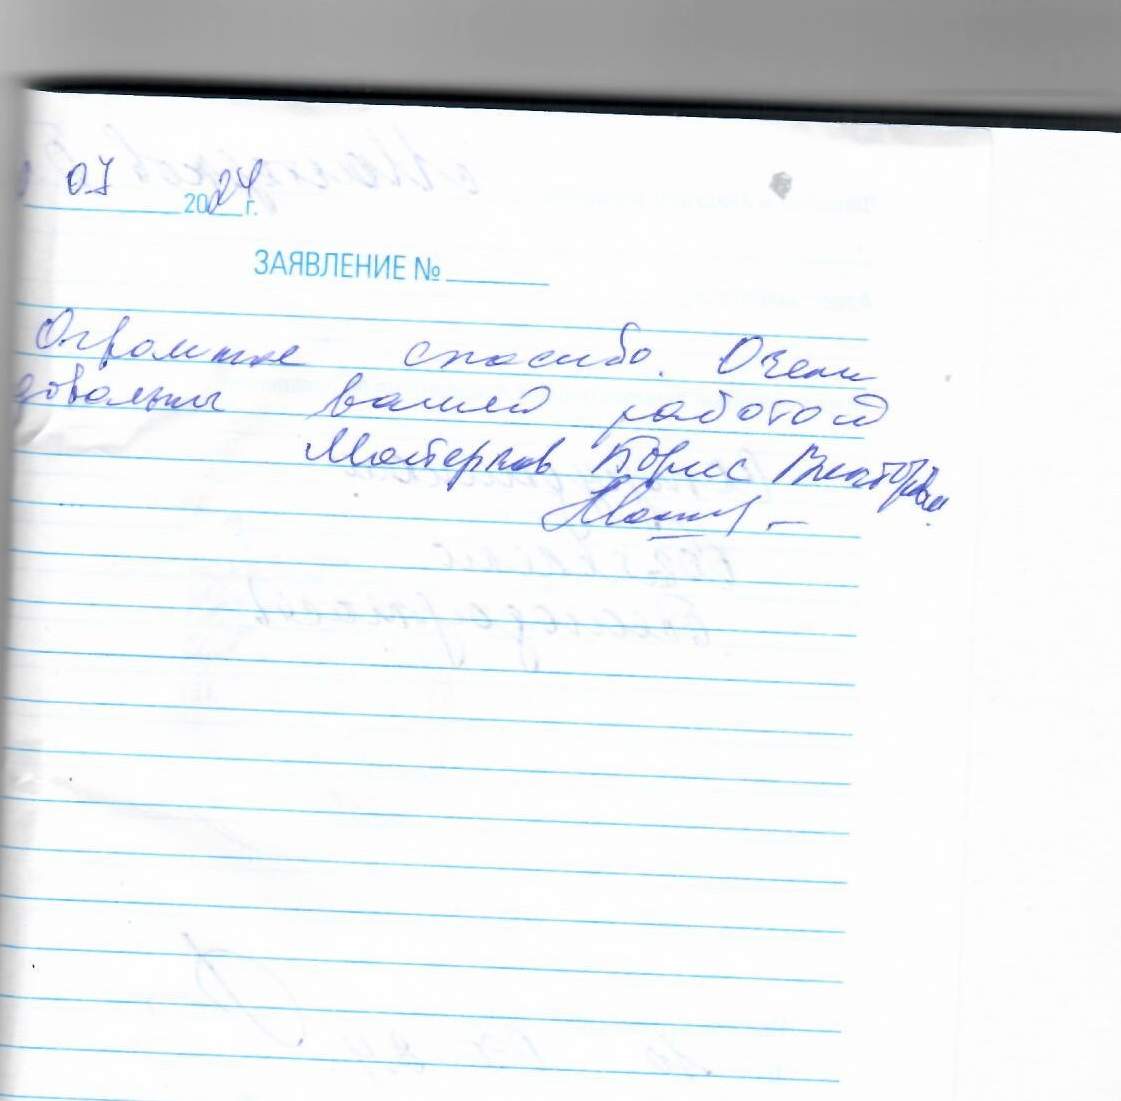 07 2024 г.
ЗАЯВЛЕНИЕ № ______
Огромное спасибо. Очень
довольны вашей работой
Мастерков Борис Викторович